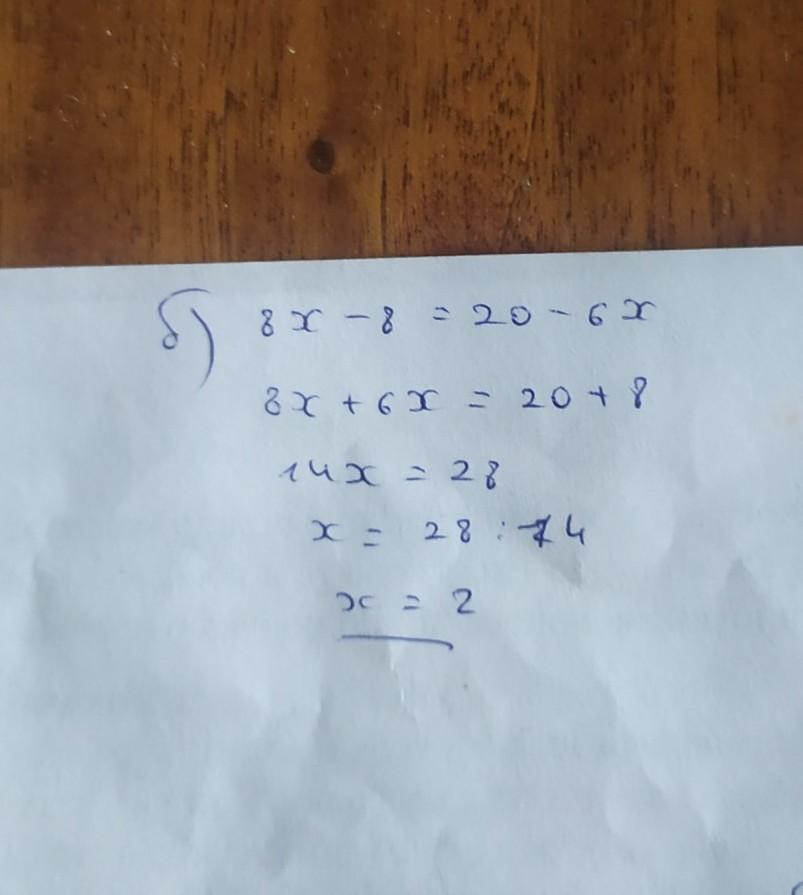 б) 8x - 8 = 20 - 6x
8x + 6x = 20 + 8
14x = 28
x = 28 : 14
x = 2